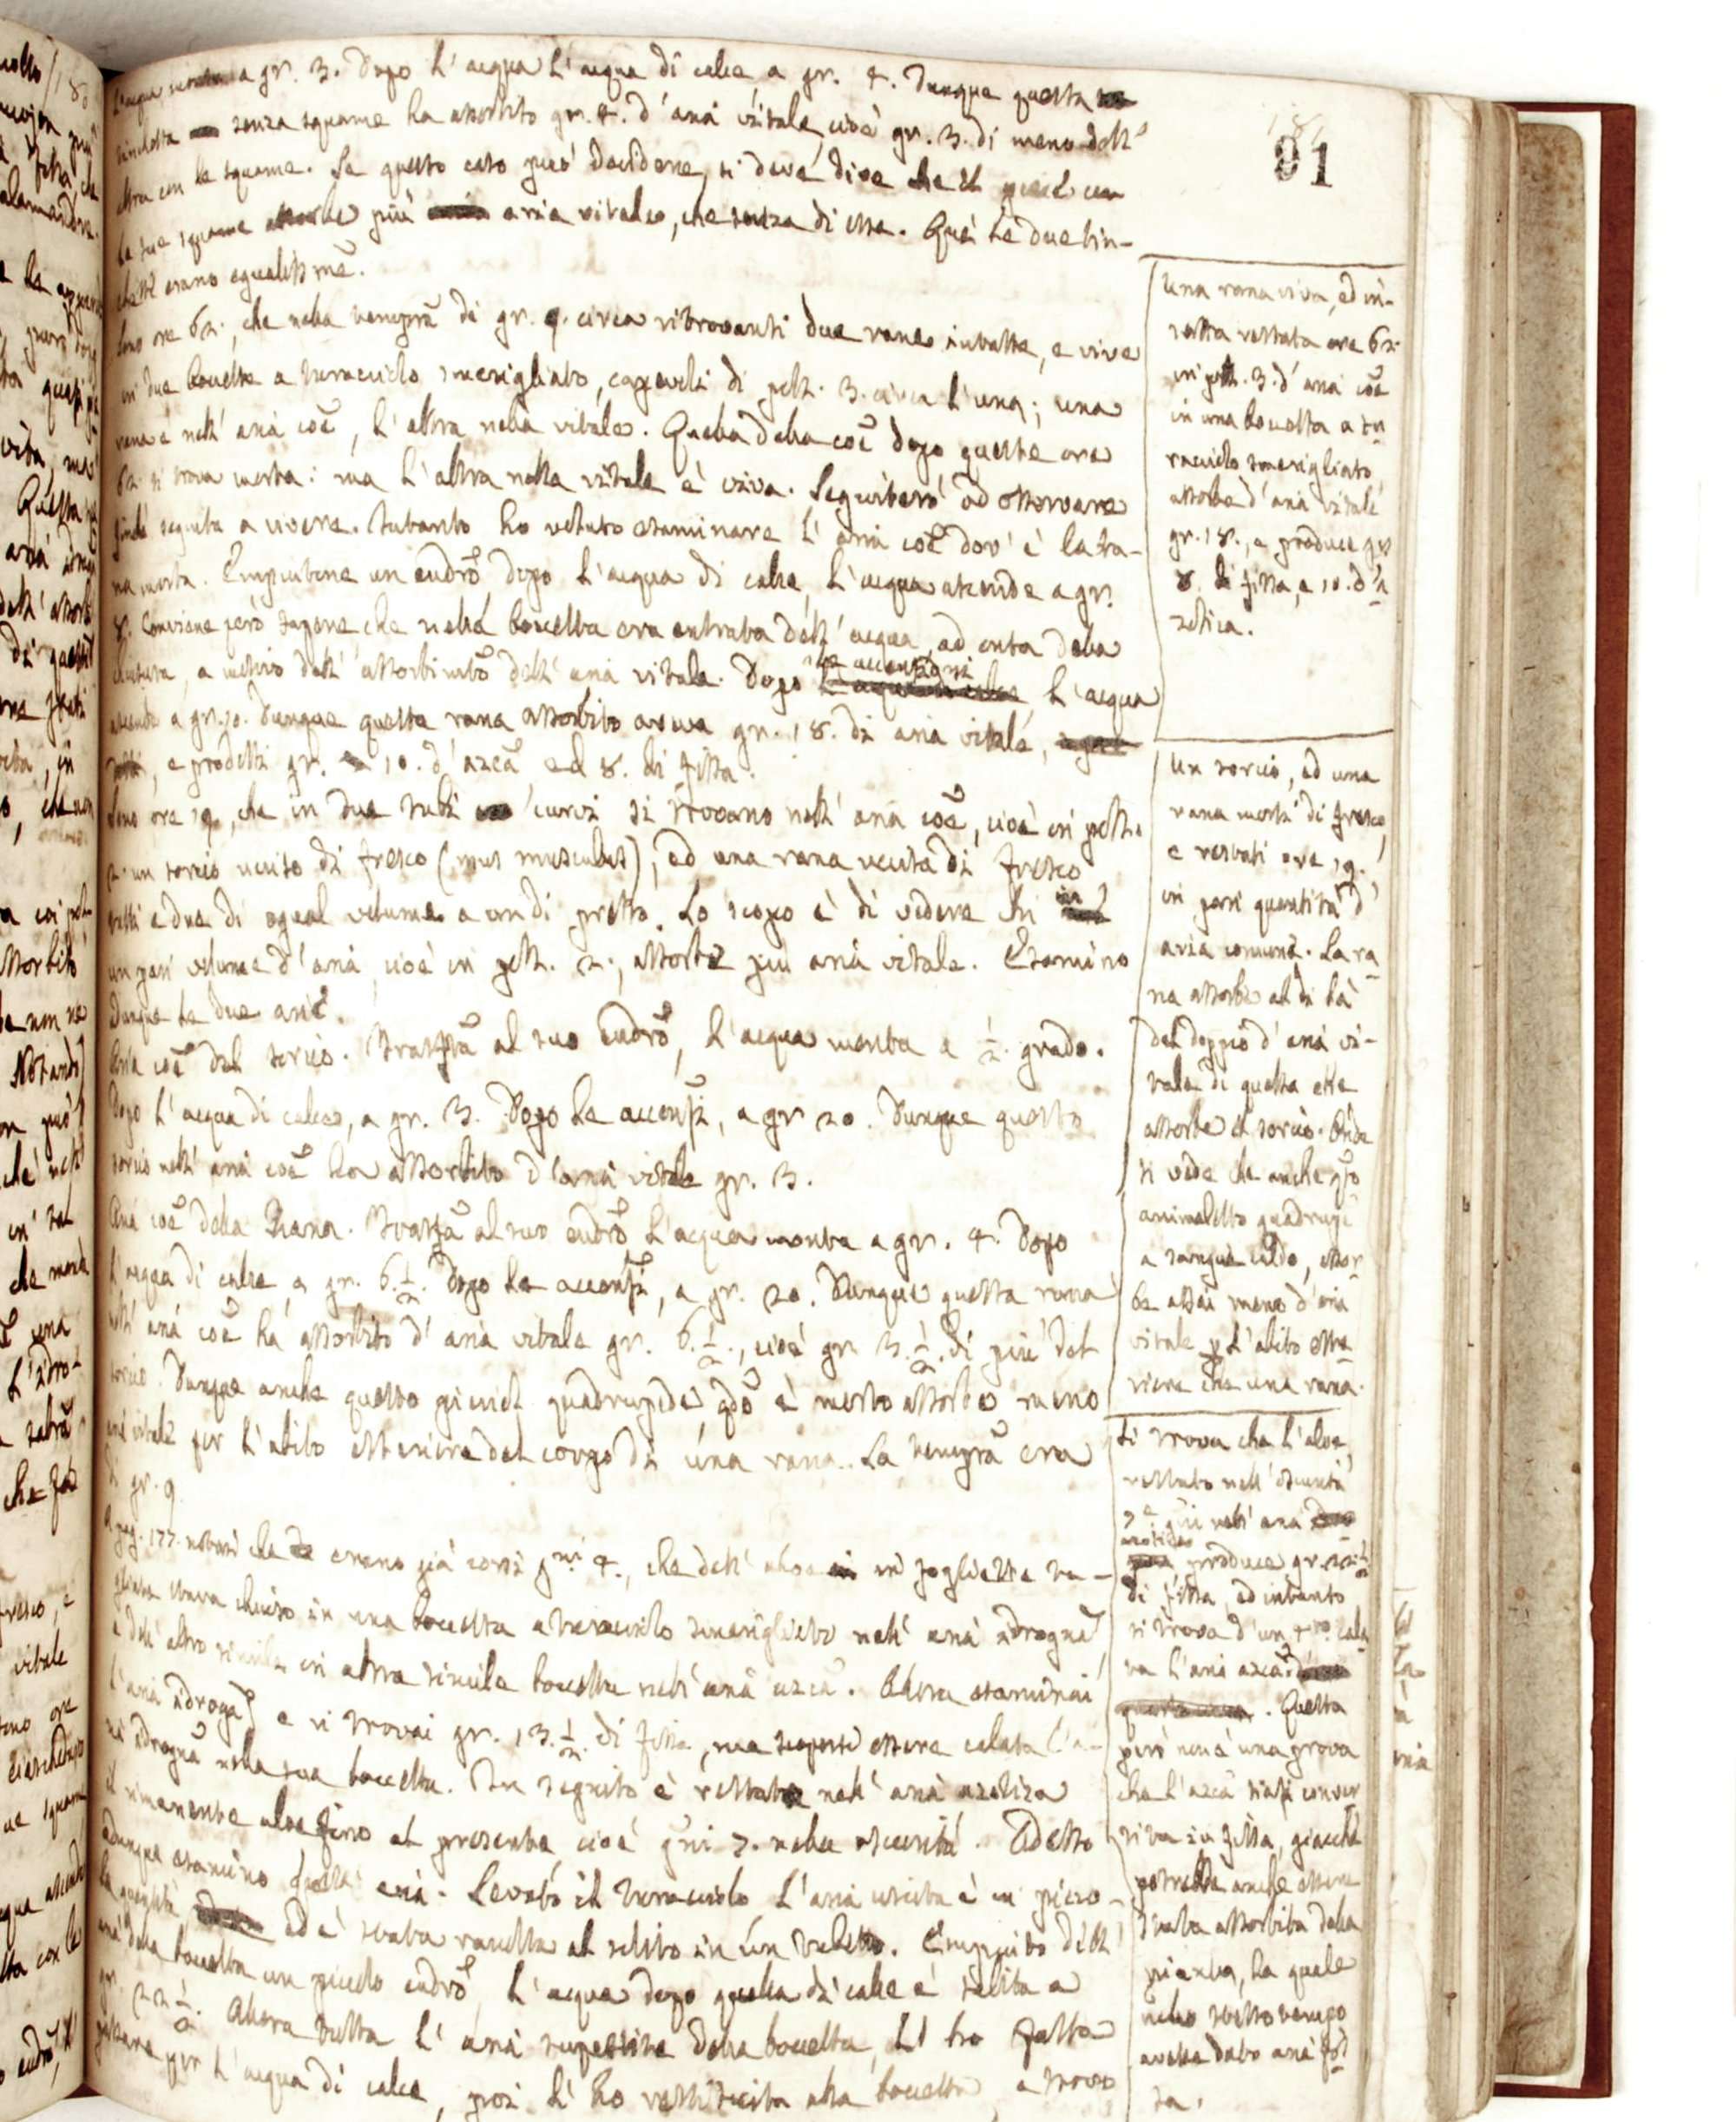 a gr. 3. Dopo l'acqua l'acqua di calce, a gr. 4. Dunque questa
senza squame ha assorbito gr. 4. d'aria vitale, cioè gr. 3. di meno dell'
altra con le squame. Se questo caso può decidere, si deve dire che il con
le sue squame assorbe più aria vitale, che senza di esse. Qui le due tin-
erano egualissime.
Sono ore 62., che nella tempra di gr. 9. circa ritrovansi due rane intatte, e vive
in due boccette a turacciolo smerigliato, capevoli di poll. 3. circa l'una; una
rana è nell'aria coe, l'altra nella vitale. Quella della coe dopo queste ore
62. si trova morta: ma l'altra nella vitale è viva. Seguiterò ad osservare
finchè seguita a vivere. Intanto ho voluto esaminare l'aria coe dov'è la ra-
na morta. Empiutone un eudro, dopo l'acqua di calce, l'acqua ascende a gr.
8. Conviene però sapere, che nella boccetta era entrata dell'acqua, ad onta della
chiusura, a motivo dell'assorbimto dell'aria vitale. Dopo le accensioni l'acqua
ascende a gr. 20. Dunque questa rana assorbito aveva gr. 18. di aria vitale,
e prodotti gr. 10. d'azca ed 8. di fissa.
Sono ore 19, che in due tubi curvi si trovano nell'aria coe, cioè in poll.
2. un sorcio ucciso di fresco (mus musculus), ed una rana uccisa di fresco
tutti e due di egual volume a un di presso. Lo scopo è di vedere chi in
un pari volume d'aria, cioè in poll. 2., assorbe più aria vitale. Esamino
dunque le due arie.
Aria coe del sorcio. Trasfta al suo eudro, l'acqua monta a 1/2. grado.
Dopo l'acqua di calce, a gr. 3. Dopo le accensi, a gr 20. Dunque questo
sorcio nell'aria coe ha assorbito d'aria vitale gr. 3.
Aria coe della Rana. Trasfta al suo eudro l'acqua monta a gr. 4. Dopo
l'acqua di calce, a gr. 6. 1/2. Dopo le accensi, a gr. 20. Dunque questa rana
nell'aria coe ha assorbito d'aria vitale gr. 6. 1/2., cioè gr 3. 1/2. di più del
sorcio. Dunque anche questo picciol quadrupede qdo è morto assorbe meno
aria vitale per l'abito esteriore del corpo di una rana. La tempra era
di gr. 9.
A pag. 177. notossi che erano già corsi gni 4., che dell'aloe in fogliette ta-
gliato stava chiuso in una boccetta a turacciolo smerigliato nell'aria idrogna,
e dell'altro simile in altra simile boccetta nell'aria azca. Allora esaminai
l'aria idroga, e vi trovai gr. 13. 1/2. di fissa, ma scopersi essere calata l'a-
ria idrogna nella sua boccetta. In seguito è restato nell'aria azotica
il rimanente aloe fino al presente cioè gni 7. nella oscurità. Adesso
adunque esamino quell'aria. Levato il turacciolo l'aria uscita è in picco-
la quantità, ed è stata raccolta al solito in un tubetto. Empiuto dell'
aria della boccetta un piccolo eudro, l'acqua dopo quella di calce è salita a
gr. 22 1/2. Allora tutta l'aria superstite della boccetta, l'ho fatta
passare per l'acqua di calce, poi l'ho restituita alla boccetta, e trovo
91
Una rana viva, ed in-
tatta restata ore 62.
in poll. 3. d'aria coe
in una boccetta a tu
racciolo smerigliato,
assorbe d'aria vitale
gr. 18., e produce gr.
8. di fissa, e 10. d'a
zotica.
Un sorcio, ed una
rana morti di fresco,
e restati ore 19.
in pari quantità d'
aria comune. La ra
na assorbe al di là
del doppio d'aria vi-
tale di quella che
assorbe il sorcio. Onde
si vede che anche qto
animaletto quadrupe
a sangue caldo, assor
be assai meno d'aria
vitale p l'abito este
riore che una rana.
Si trova che l'aloe,
restato nell'oscurità
7. gni nell'aria
azotica produce gr. 22. 1/2
di fissa, ed intanto
si trova d'un 4to cala
ta l'aria azca.
Questa
però non è una prova
che l'azca siasi conver
tita in fissa, giacchè
potrebbe anche essere
stata assorbita dalla
pianta, la quale
nello stesso tempo
avesse dato aria fis
sa.